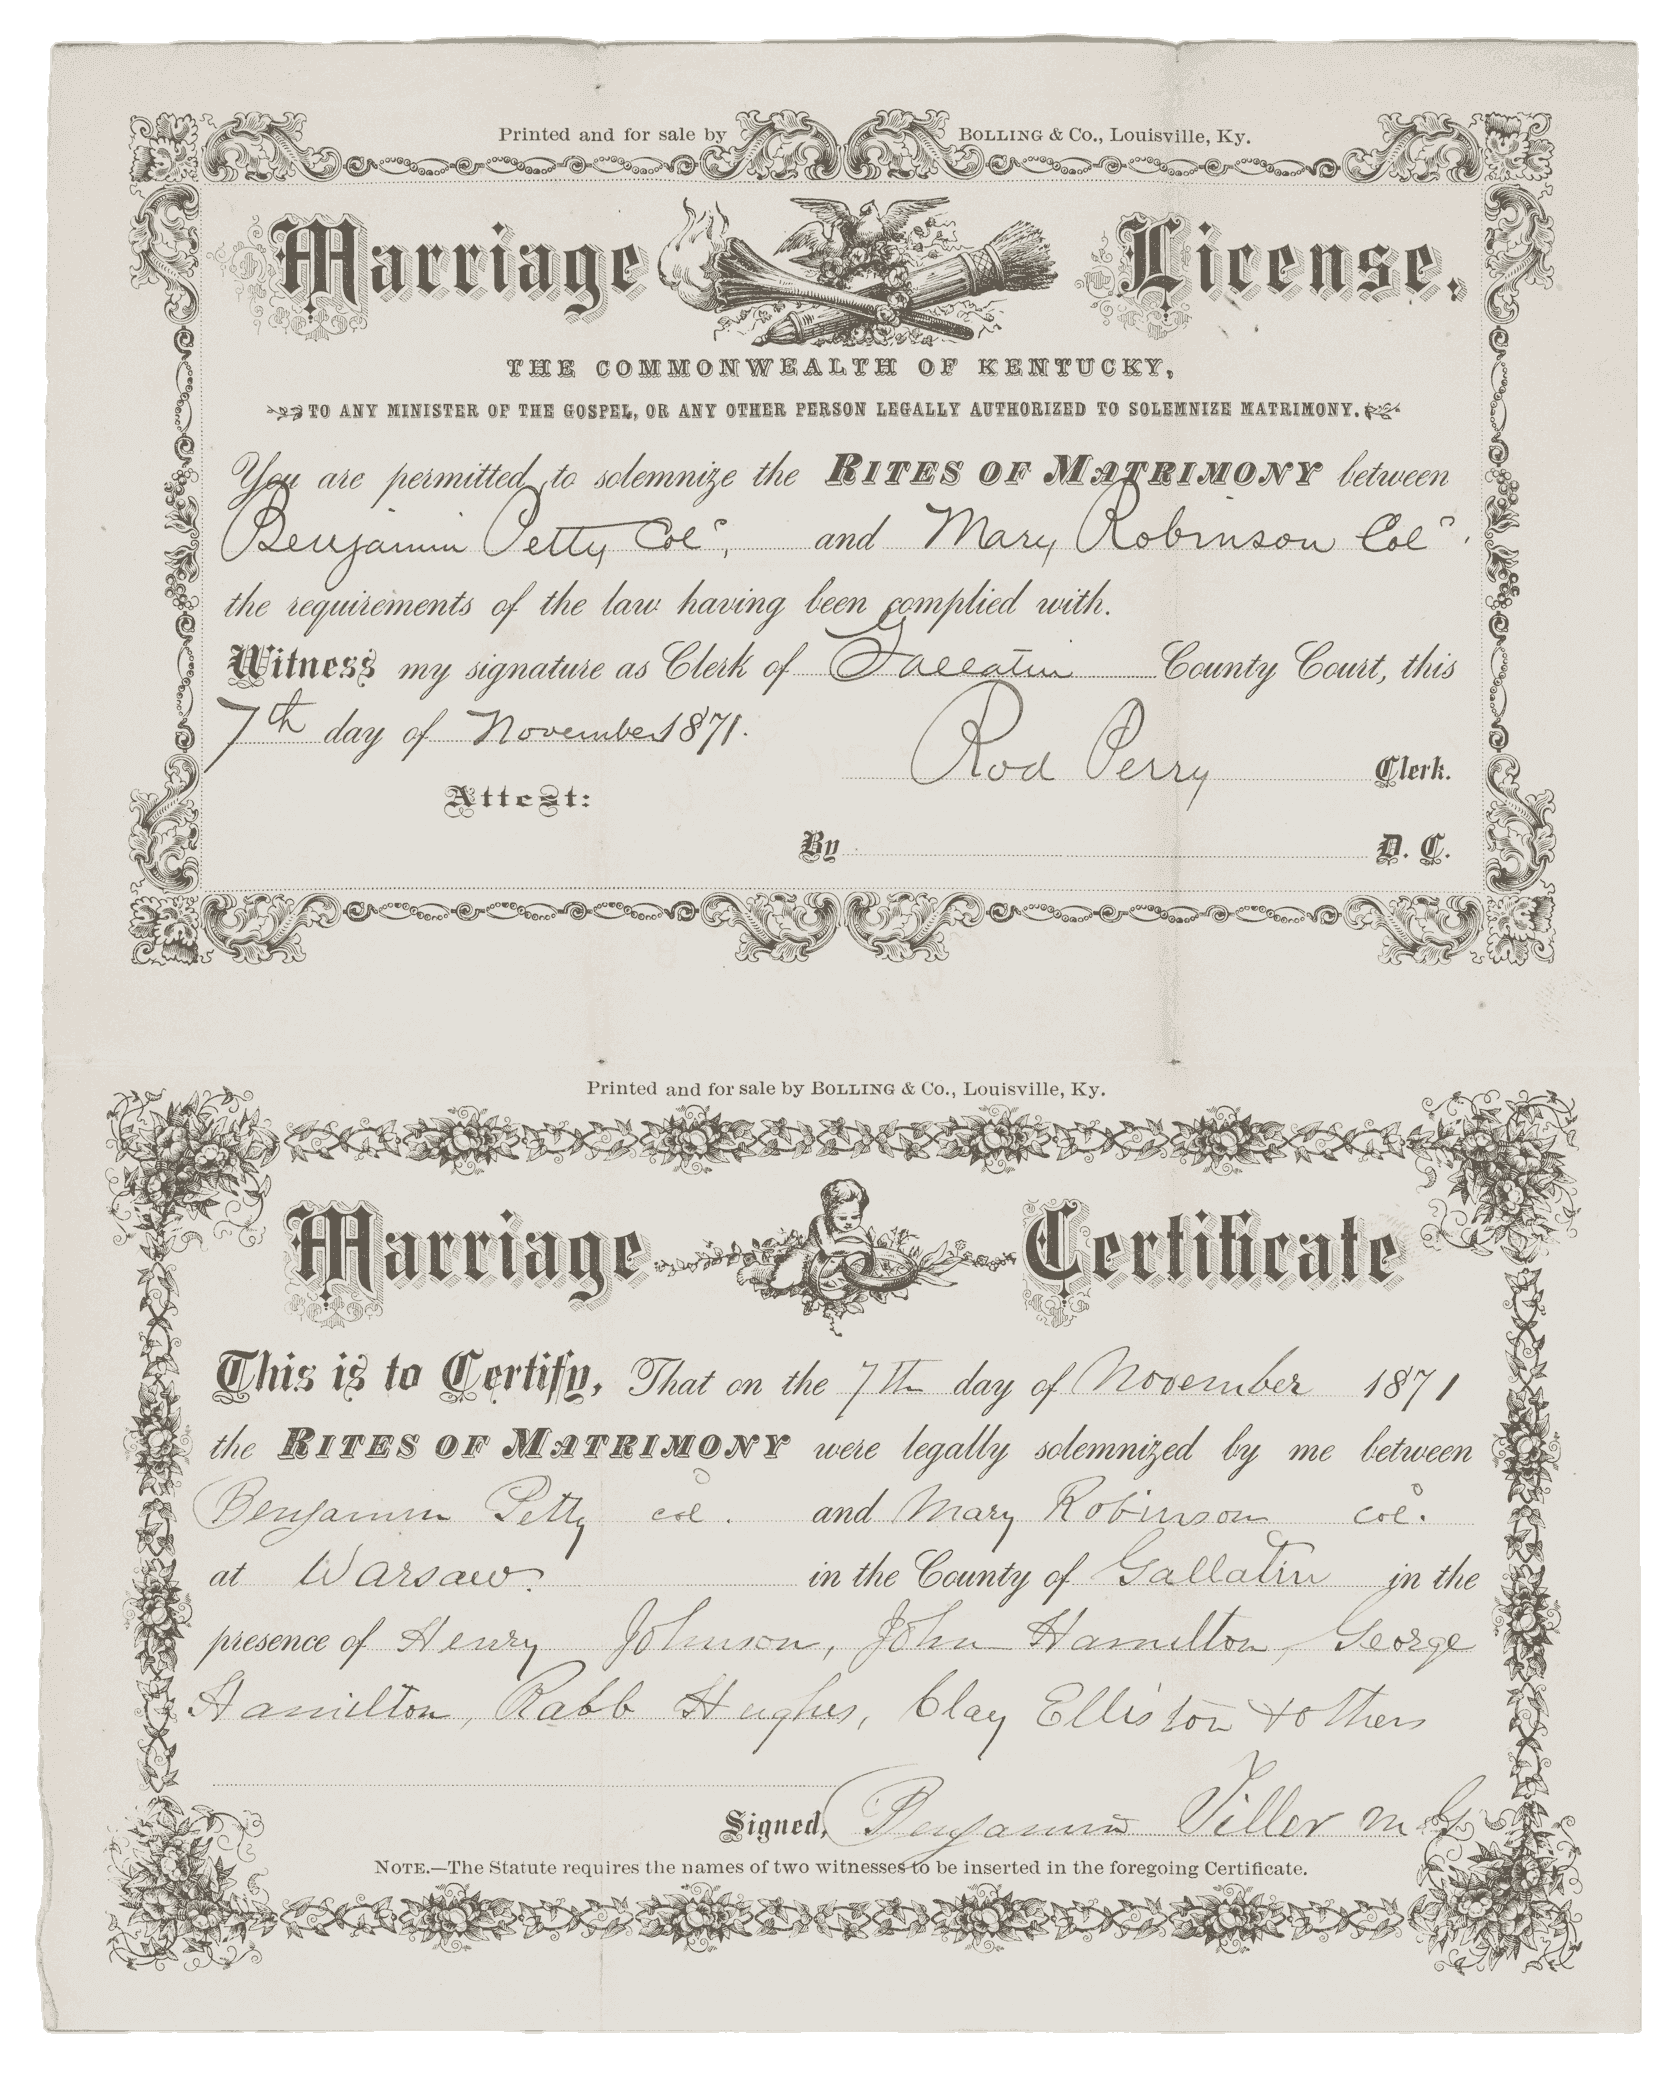 Printed and for sale by BOLLING & Co., Louisville, Ky.
Marriage License,
THE COMMONWEALTH OF KENTUCKY,
TO ANY MINISTER OF THE GOSPEL, OR ANY OTHER PERSON LEGALLY AUTHORIZED TO SOLEMNIZE MATRIMONY.
You are permitted to solemnize the RITES OF MATRIMONY between
Benjamin Petty Cold, and Mary Robinson Cold.
the requirements of the law having been complied with.
Witness my signature as Clerk of Gallatin County Court, this
7th day of November 1871.
Rod Perry Clerk.
Attest:
By D. C.
Printed and for sale by BOLLING & Co., Louisville, Ky.
Marriage Certificate
This is to Certify, That on the 7th day of November 1871
the RITES OF MATRIMONY were legally solemnized by me between
Benjamin Petty cold. and Mary Robinson cold.
at Warsaw. in the County of Gallatin in the
presence of Henry Johnson, John Hamilton, George
Hamilton, Rabb Hughes, Clay Elliston & others
Signed, Benjamin Tiller M G
NOTE.—The Statute requires the names of two witnesses to be inserted in the foregoing Certificate.